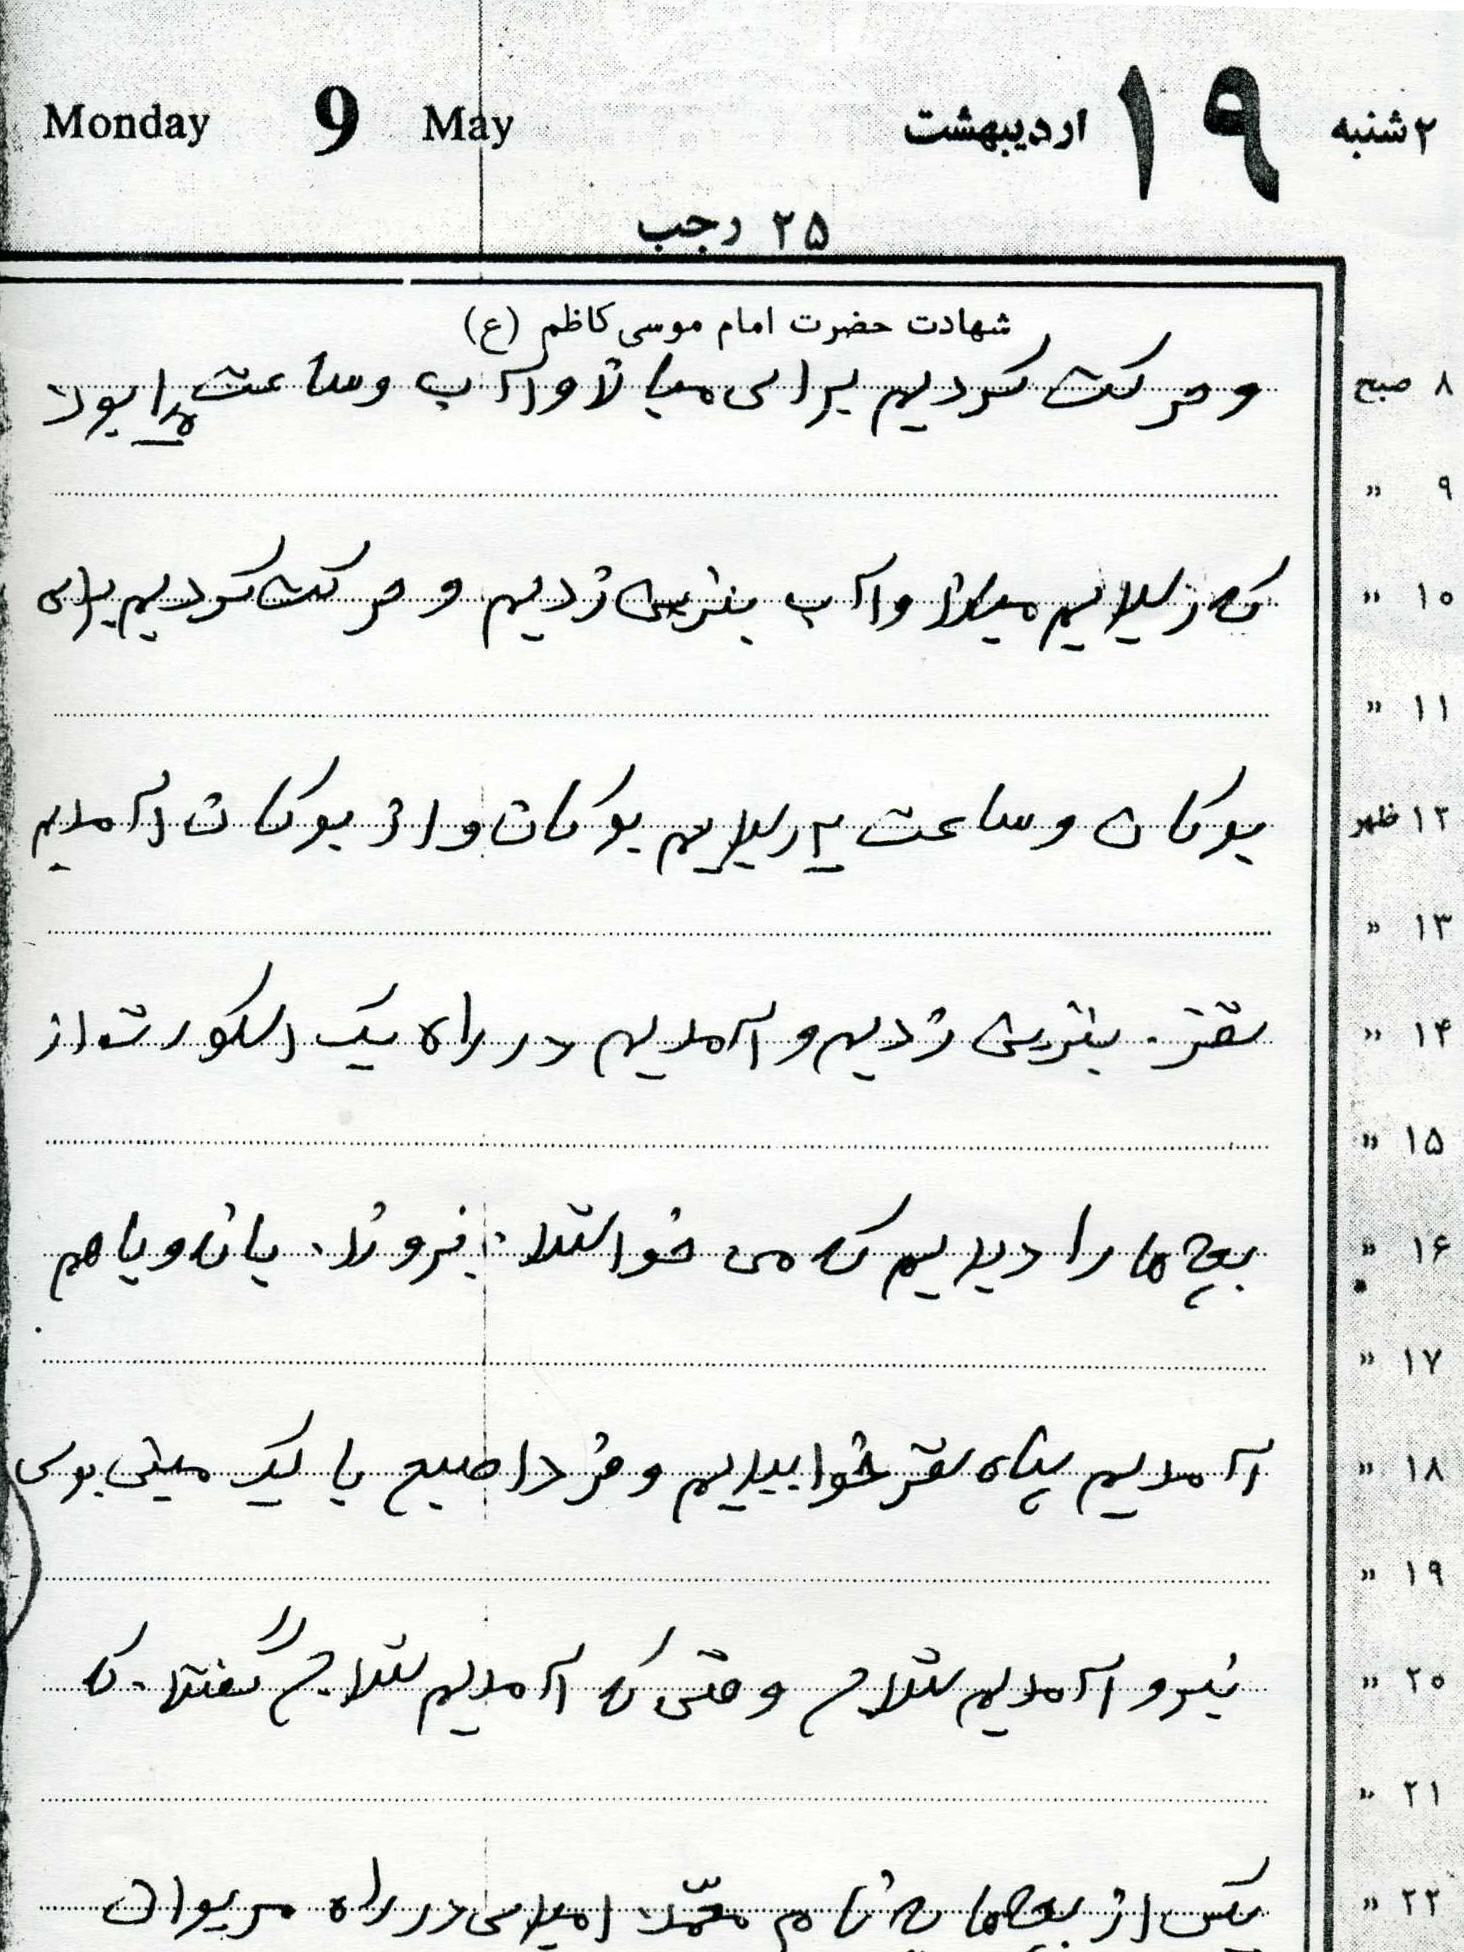 Monday 9 May ۲شنبه ۱۹ اردیبهشت
۲۵ رجب
شهادت حضرت امام موسی کاظم (ع)
۸ صبح و حرکت کردیم برای میاندوآب و ساعت بود
۹ »
۱۰ » که رسیدیم میاندوآب بنزین زدیم و حرکت کردیم برای
۱۱ »
۱۲ ظهر بوکان و ساعت رسیدیم بوکان و از بوکان آمدیم
۱۳ »
۱۴ » سقز. بنزین زدیم و آمدیم در راه یک اسکورت از
۱۵ »
۱۶ » بچه‌ها را دیدیم که می خواستند بروند. بانه و ما هم
۱۷ »
۱۸ » آمدیم سپاه سقز خوابیدیم و فردا صبح با یک مینی بوس
۱۹ »
۲۰ » نیرو آمدیم سنندج وقتی که آمدیم سنندج گفتند. که
۲۱ »
۲۲ » یکی از بچه‌ها به نام محمد امیدی در راه مریوان